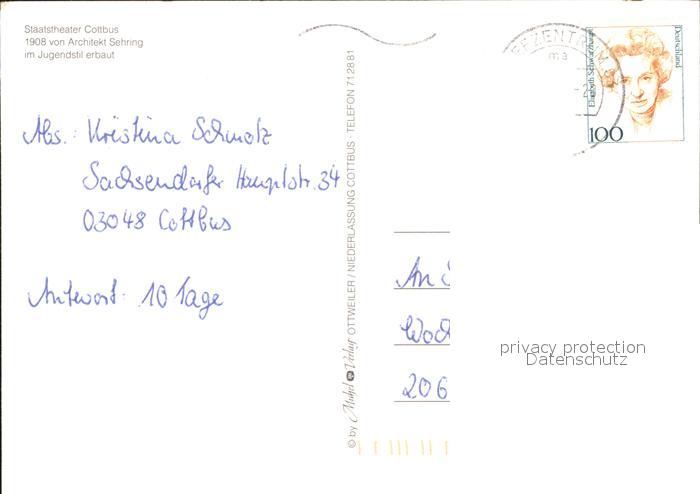 Staatstheater Cottbus
1908 von Architekt Sehring
im Jugendstil erbaut
Abs.: Kristina Schmolz
Sachsendorfer Hauptstr. 34
03048 Cottbus
Antwort: 10 Tage
© by Michel Verlag OTTWEILER / NIEDERLASSUNG COTTBUS · TELEFON 712881
Elisabeth Schwarzhaupt
Deutschland
100
An
Woch
206
privacy protection
Datenschutz